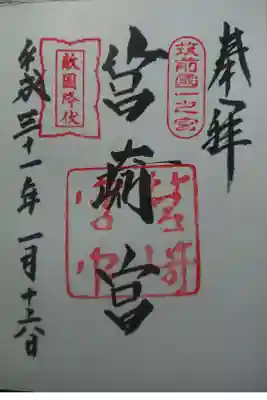 奉拝
筑前國一之宮
筥崎宮
敵国降伏
平成三十一年一月十六日